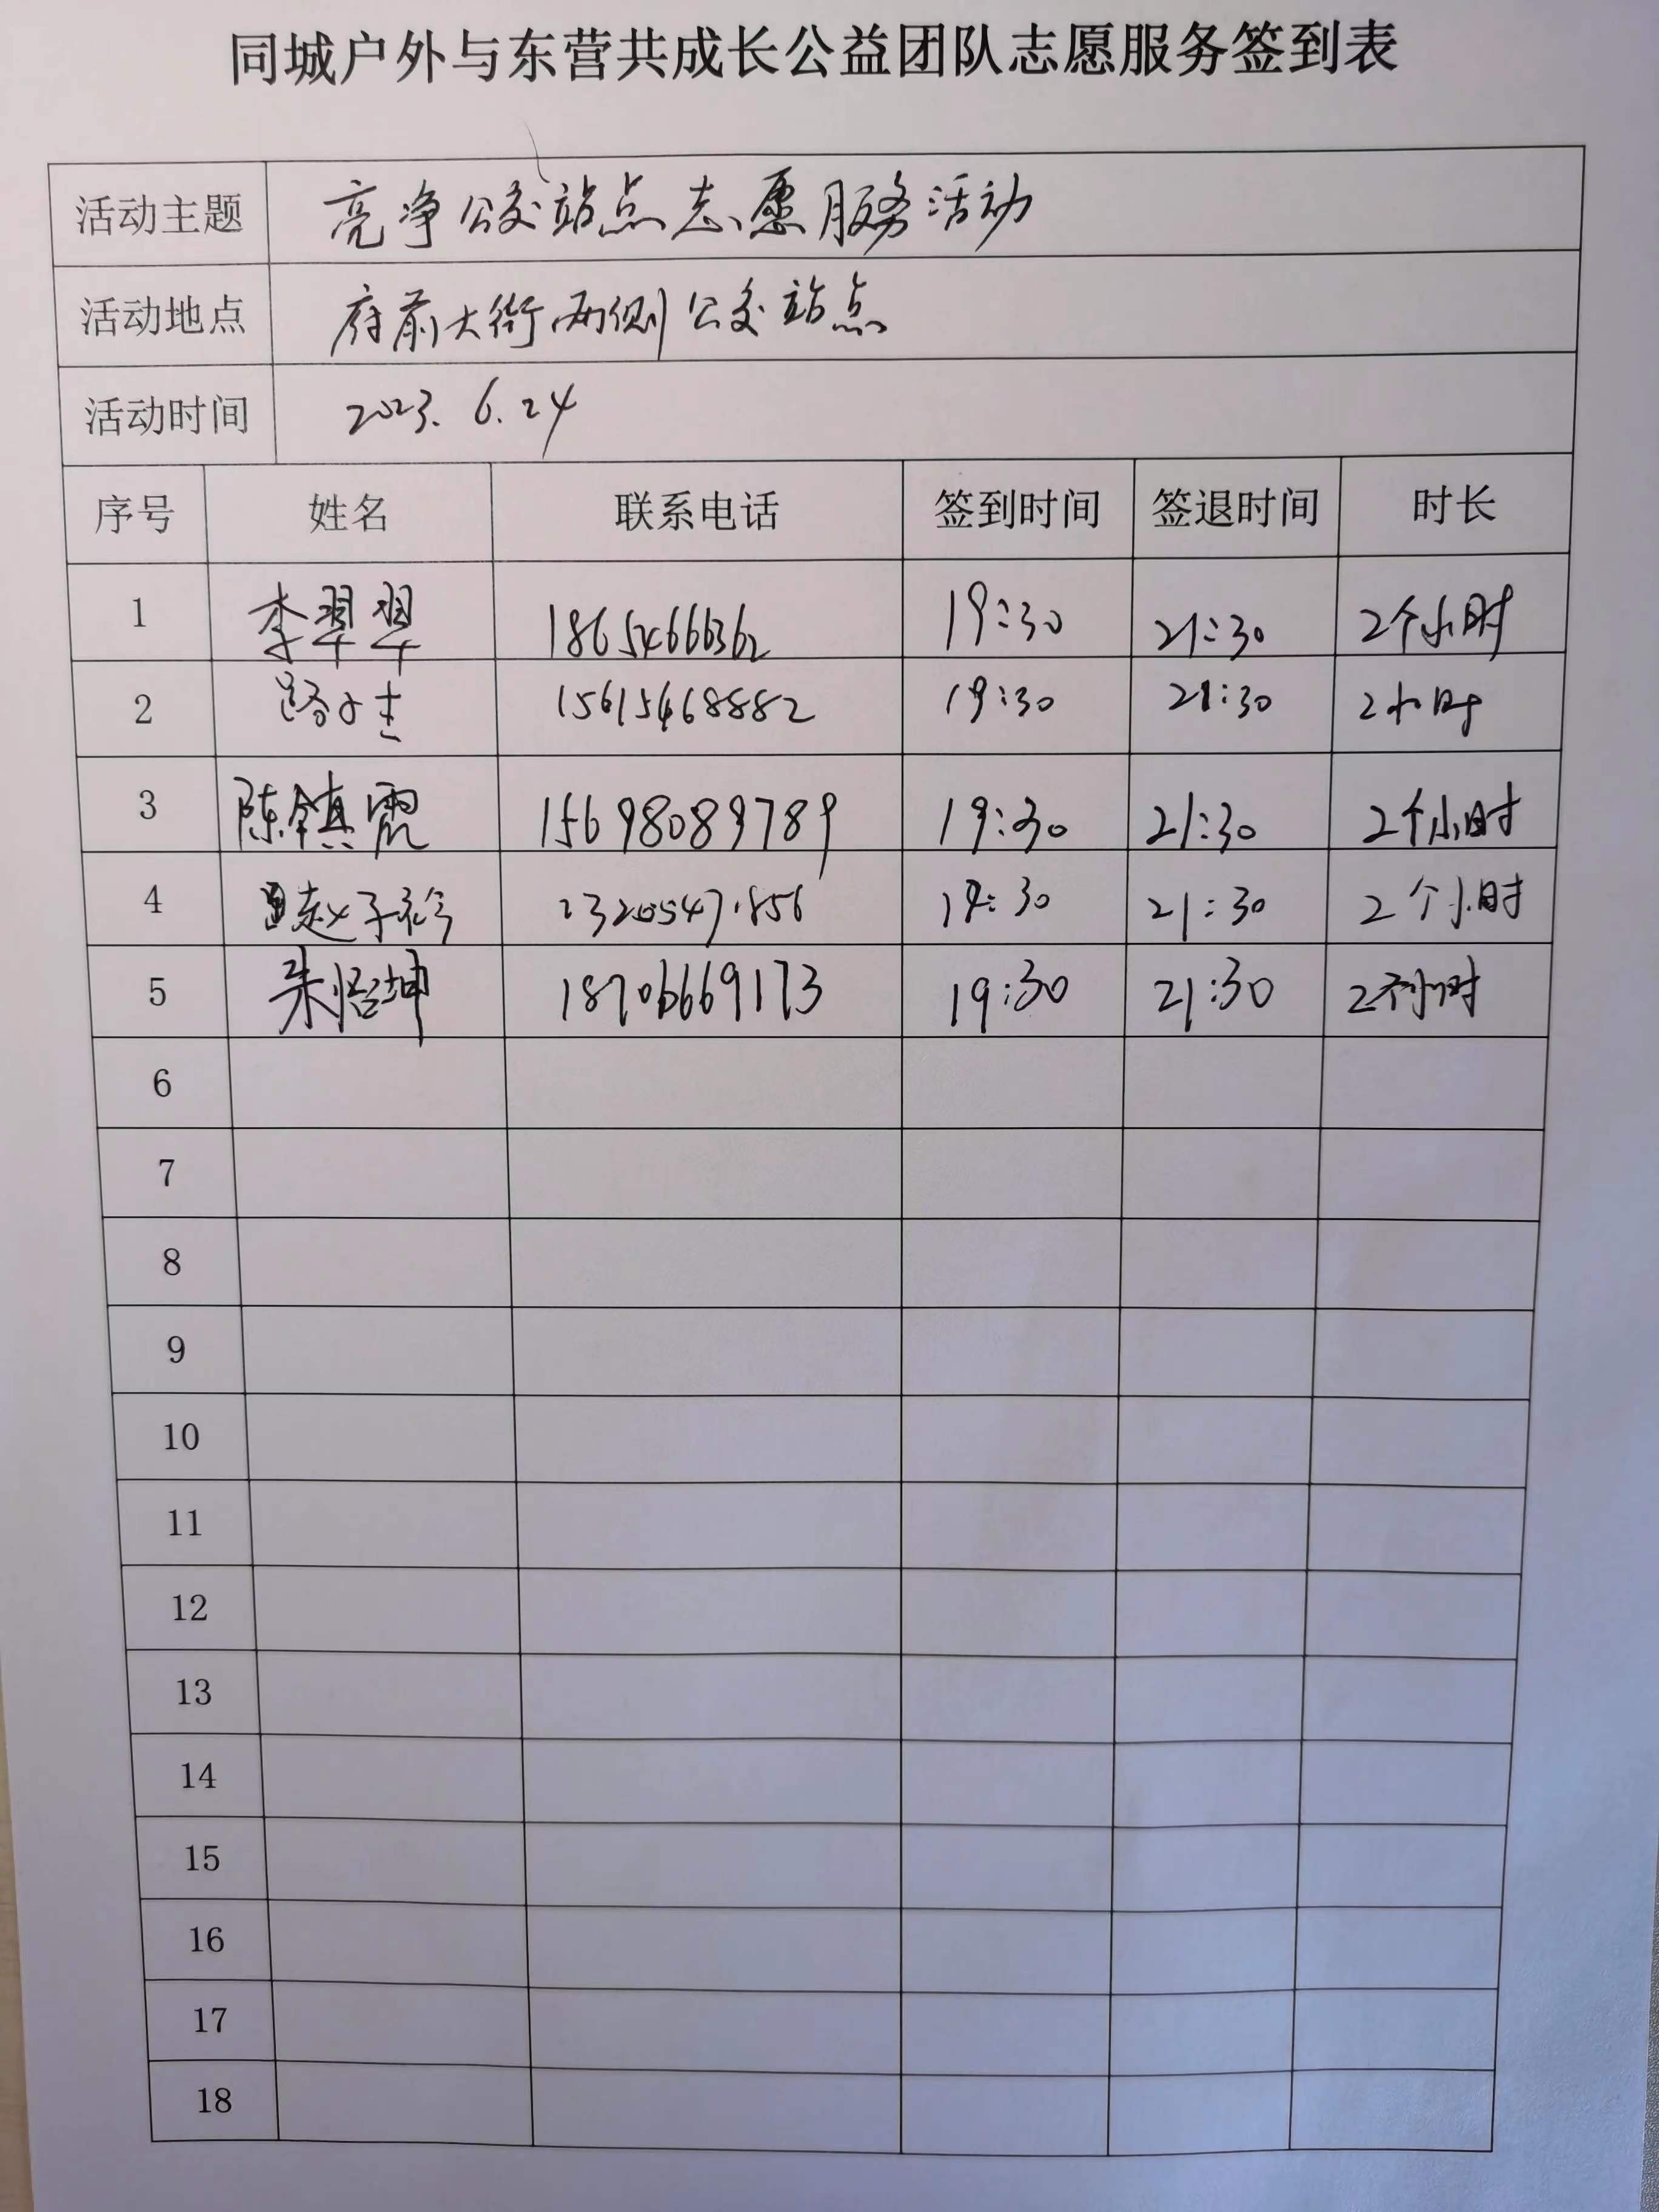 同城户外与东营共成长公益团队志愿服务签到表
活动主题 亮净公交站点志愿服务活动
活动地点 府前大街两侧公交站点
活动时间 2023.6.24
序号 姓名 联系电话 签到时间 签退时间 时长
1 李翠翠 18654666362 19:30 21:30 2个小时
2 15615468882 19:30 21:30 2小时
3 陈镇霓 15698089789 19:30 21:30 2个小时
4 赵子衿 19:30 21:30 2个小时
5 朱恪坤 18706669173 19:30 21:30 2个小时
6
7
8
9
10
11
12
13
14
15
16
17
18